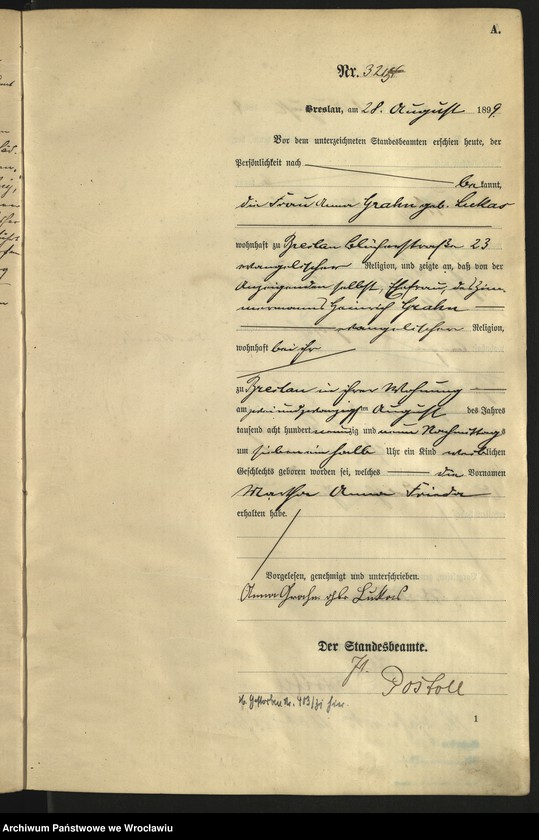 A.
Nr.
Breslau, am 28. August 1899.
Vor dem unterzeichneten Standesbeamten erschien heute, der
Persönlichkeit nach
bekannt,
die Frau Anna Grahn geb. Lukas
wohnhaft zu Breslau Blücherstraße 23
evangelischer Religion, und zeigte an, daß von der
Anzeigenden selbst, Ehefrau des Zim
mermanns Heinrich Grahn
evangelischer Religion,
wohnhaft bei ihr
zu Breslau in ihrer Wohnung
am zwei und zwanzigsten August des Jahres
tausend acht hundert neunzig und neun Nachmittags
um sieben ein halb Uhr ein Kind weiblichen
Geschlechts geboren worden sei, welches die Vornamen
Martha Anna Frieda
erhalten habe.
Vorgelesen, genehmigt und unterschrieben.
Anna Grahn geb Lukas
Der Standesbeamte.
Postoll
1
Archiwum Państwowe we Wrocławiu